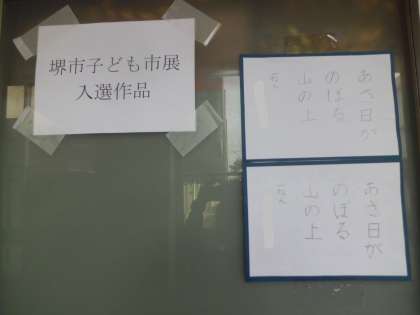 堺市子ども市展
入選作品
あさ日が
のぼる
山の上
あさ日が
のぼる
山の上